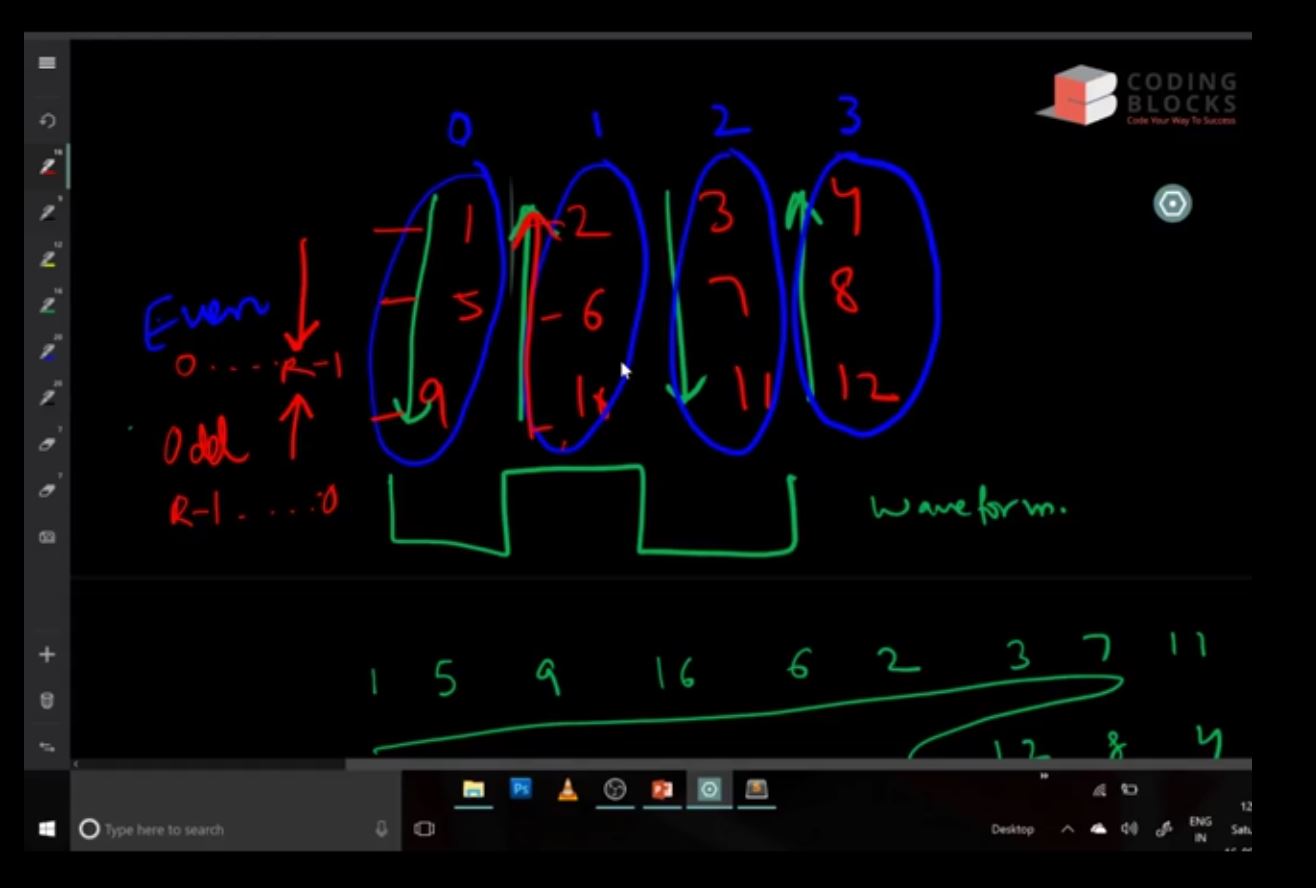 CODING
BLOCKS
Code Your Way To Success
0 1 2 3
1 2 3 4
Even
5 6 7 8
0.....R-1
9 11 12
Odd
R-1.....0
waveform.
1 5 9 16 6 2 3 7 11
12 8 4
Ps
Type here to search
Desktop
ENG
IN